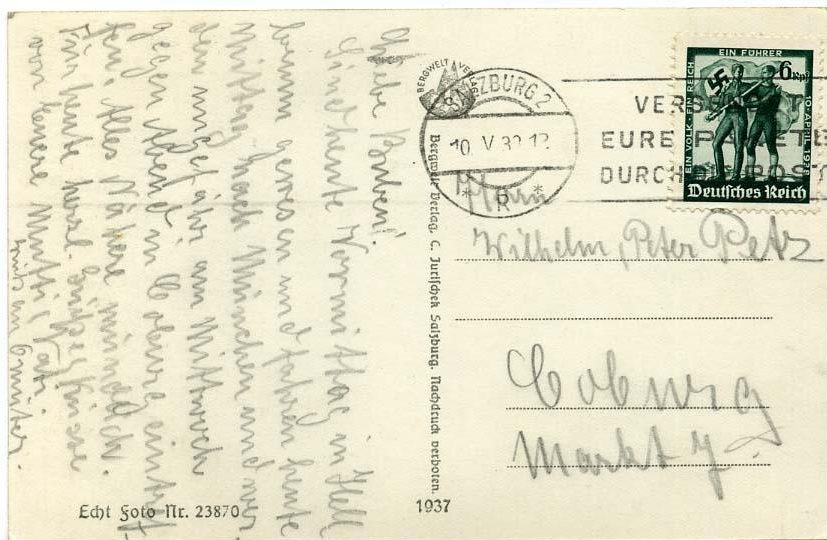 Liebe Buben!
Sind heute Vormittag in Hell
brunn gewesen und fahren heute
Mittag nach München und wer
den ungefähr am Mittwoch
gegen Abend in Coburg eintref
fen. Alles Nähere mündlich.
Für heute herzl. Grüße & Küsse
von Eurer Mutti, Vati.
Gruß an
Echt Foto Nr. 23870
BERGWELT VERLAG
Bergwelt Verlag. C. Jurischek Salzburg. Nachdruck verboten.
1937
SALZBURG 2
10. V. 38. 12
* R *
VERSENDET
EURE PAKETE
DURCH DIE POST
EIN FÜHRER
EIN VOLK · EIN REICH
10. APRIL 1938
6 Rpf
Deutsches Reich
Wilhelm, Peter Petz
Coburg
Markt 7.